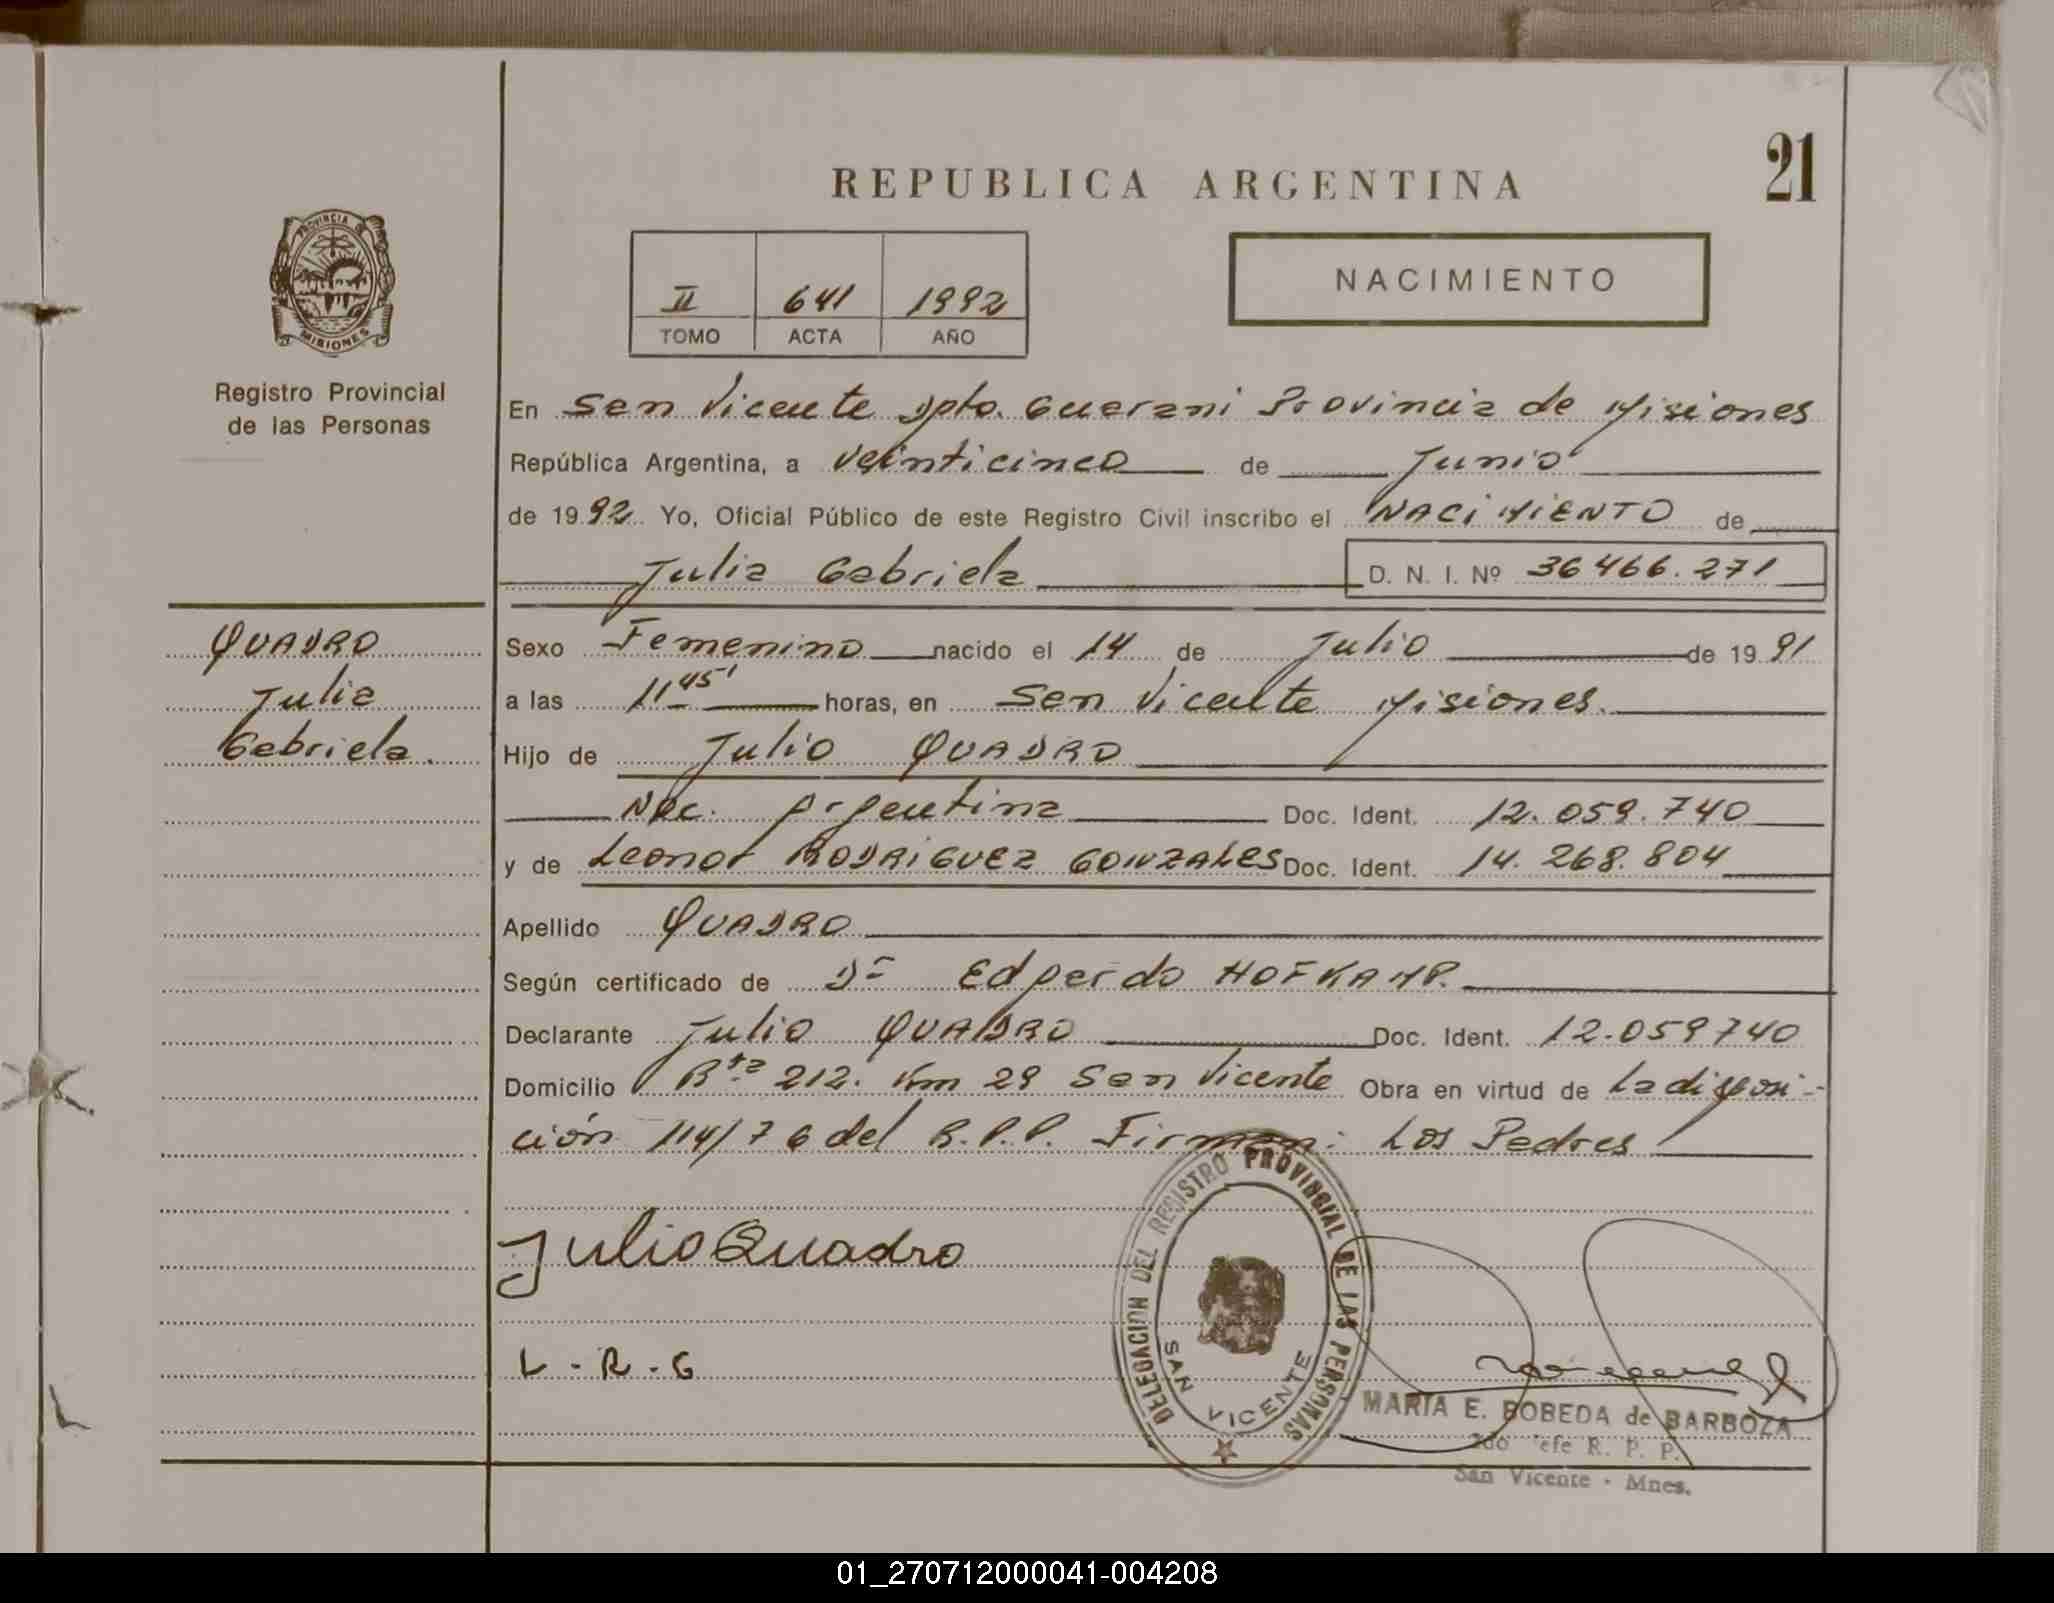 21
REPUBLICA ARGENTINA
PROVINCIA DE
MISIONES
Registro Provincial
de las Personas
II 641 1992
TOMO ACTA AÑO
NACIMIENTO
En San Vicente Dpto. Guarani Provincia de Misiones
República Argentina, a veinticinco de Junio
de 1992 Yo, Oficial Público de este Registro Civil inscribo el NACIMIENTO de
Julia Gabriela D. N. I. Nº 36466.271
QUADRO
Julia
Gabriela.
Sexo Femenino nacido el 14 de Julio de 1991
a las 11 45' horas, en San Vicente Misiones.
Hijo de Julio QUADRO
Nac. Argentina Doc. Ident. 12.059.740
y de Leonor RODRIGUEZ GONZALES Doc. Ident. 14.268.804
Apellido QUADRO
Según certificado de Dr Edgardo HOFKAMP.
Declarante Julio QUADRO Doc. Ident. 12.059740
Domicilio Rta 212. Km 29 San Vicente Obra en virtud de La disposi-
ción 114/76 del R.P.P. Firman: Los Padres
Julio Quadro
L-R-G
DELEGACION DEL REGISTRO PROVINCIAL DE LAS PERSONAS
SAN VICENTE
MARIA E. BOBEDA de BARBOZA
2do Jefe R. P. P.
San Vicente - Mnes.
01_270712000041-004208